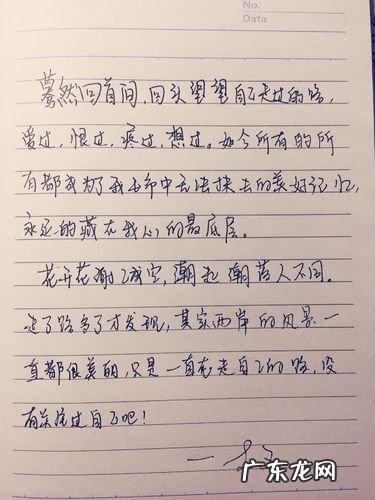 No.
Date
蓦然回首间,回头望望自己走过的路,
爱过,恨过,疼过,想过。如今所有的所
有都成为了我生命中无法抹去的美好记忆,
永远的藏在我心的最底层。
花开花谢已成空,潮起潮落人不同。
走了路多了才发现,其实两岸的风景一
直都很美的,只是一直在走自己的路,没
有关注过自己吧!
广东龙网